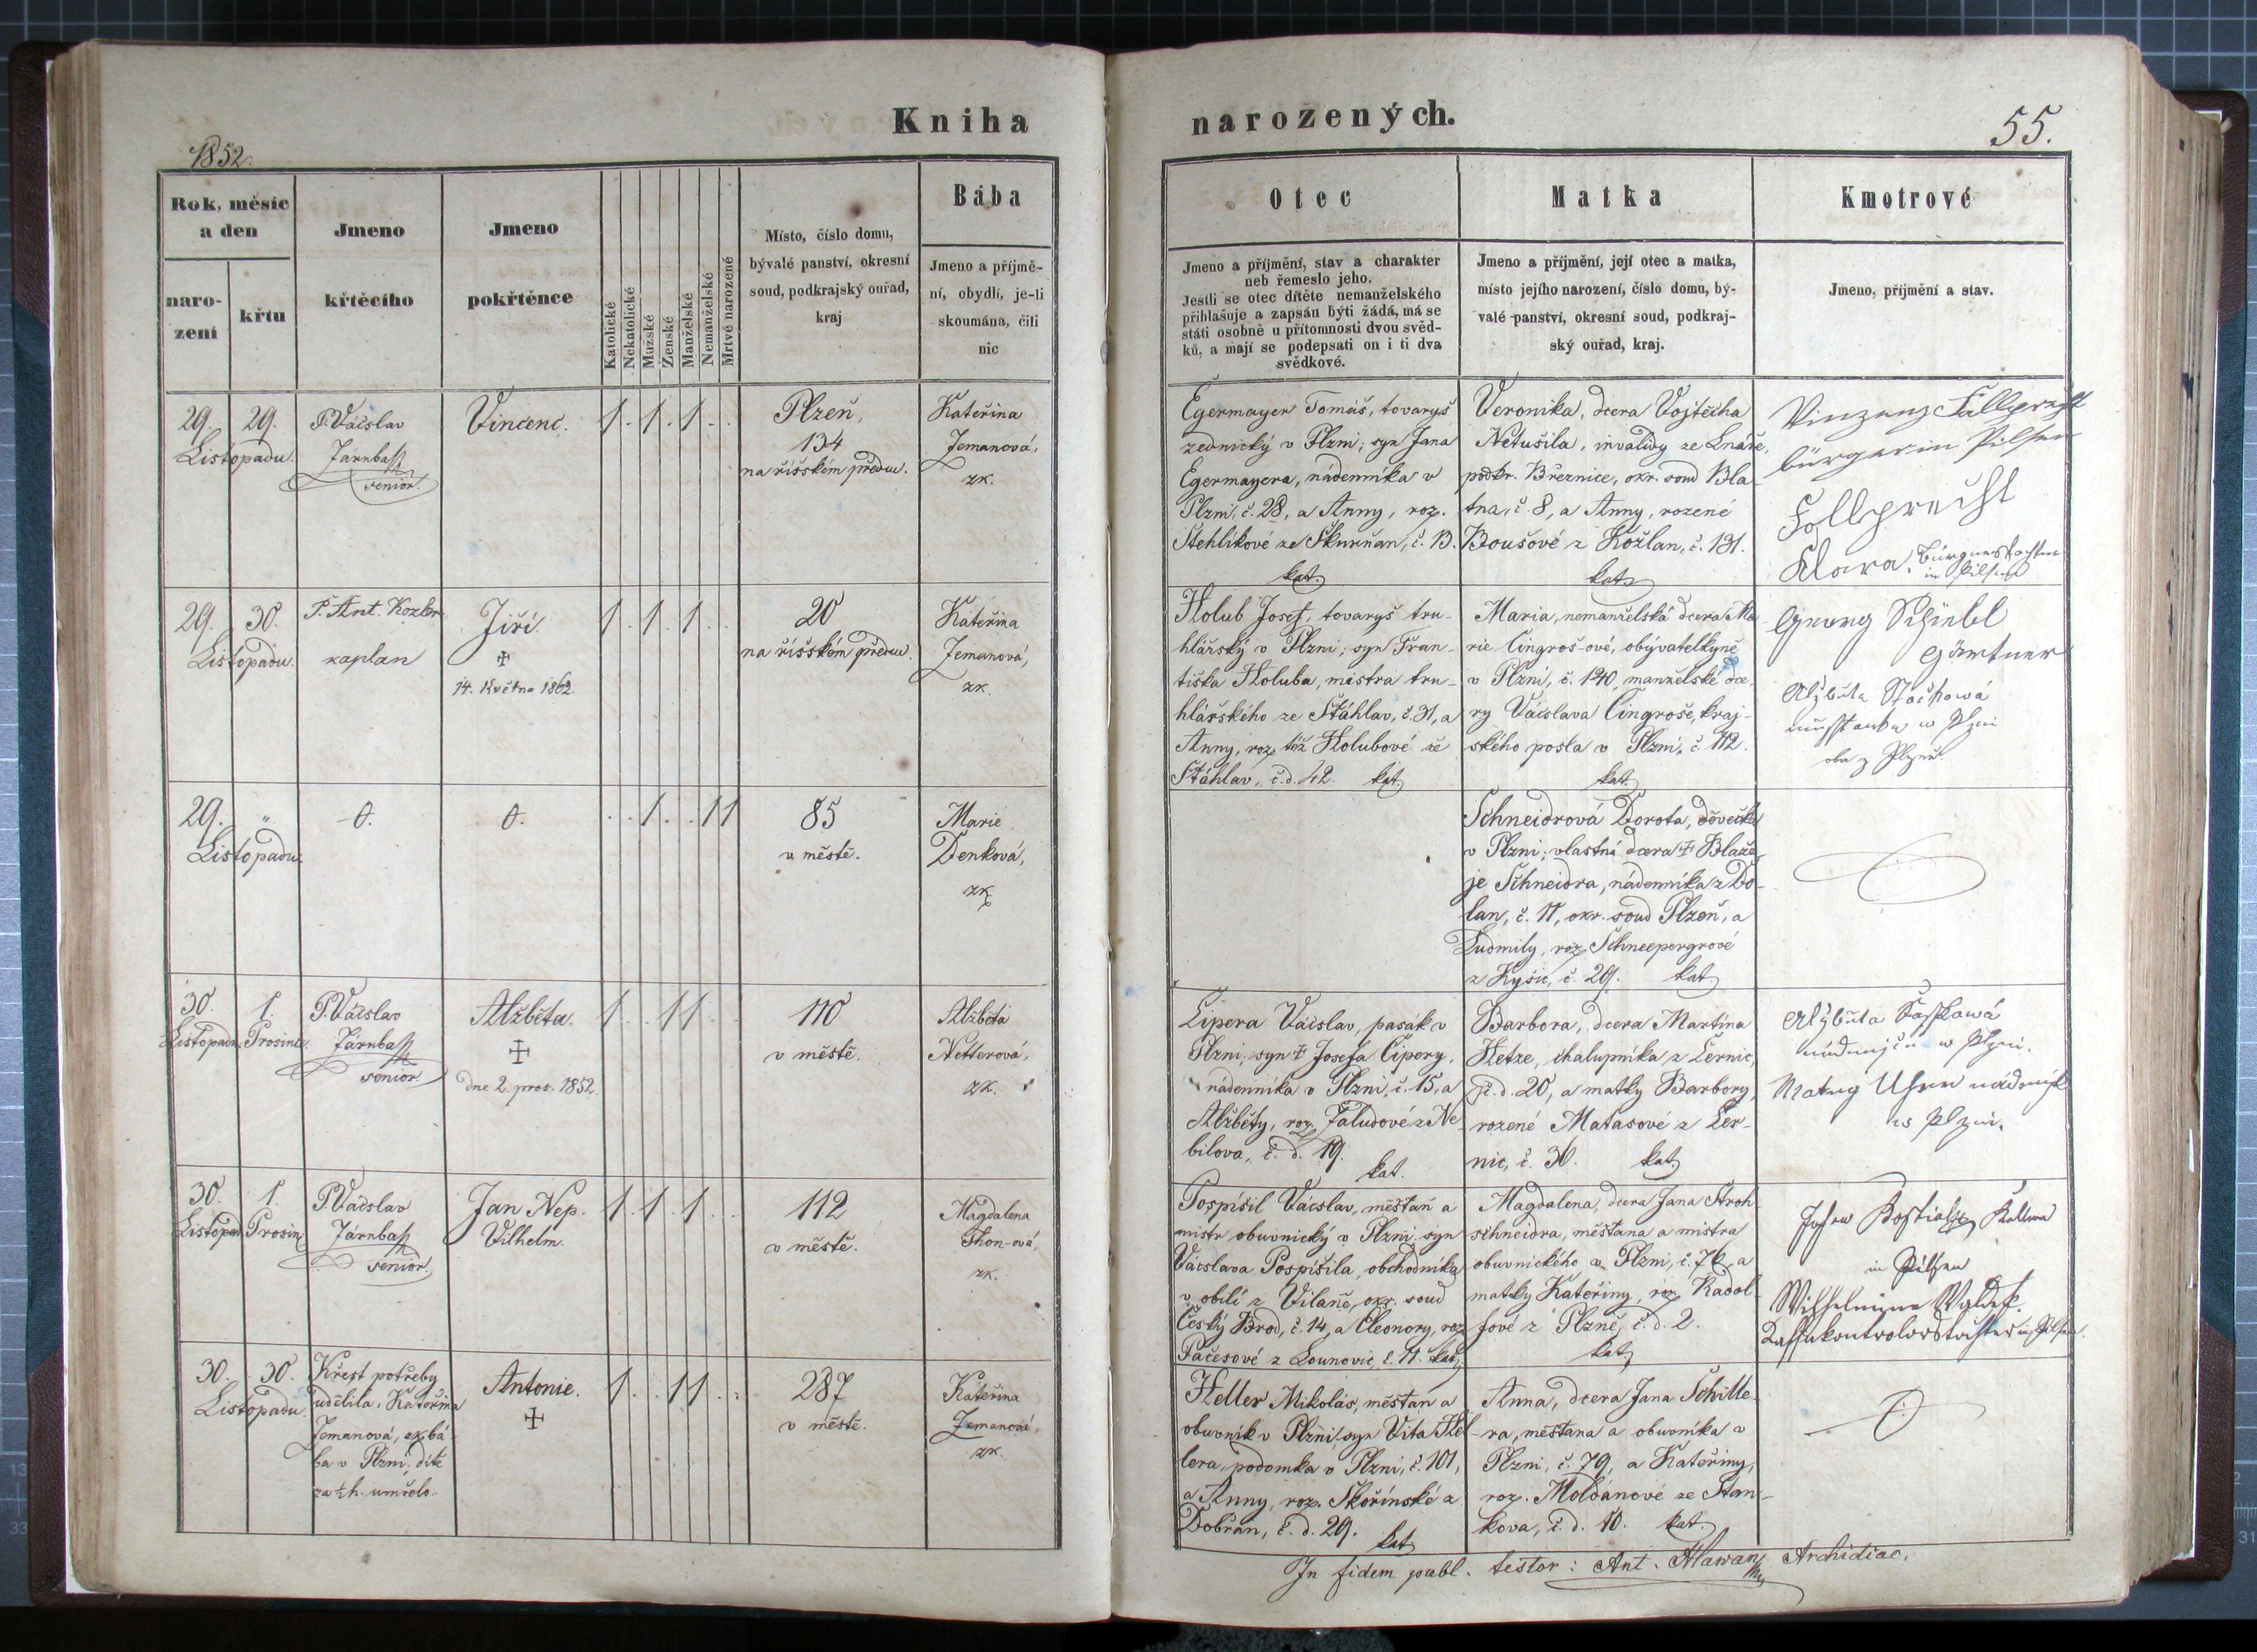 Kniha
narozených.
1852.
55.
Rok, měsíc
a den
naro-
zení
křtu
Jmeno
křtěcího
Jmeno
pokřtěnce
Katolické
Nekatolické
Mužské
Ženské
Manželské
Nemanželské
Mrtvě narozené
Místo, číslo domu,
bývalé panství, okresní
soud, podkrajský ouřad,
kraj
Bába
Jmeno a příjmě-
ní, obydlí, je-li
skoumána, čili
nic
Otec
Jmeno a příjmění, stav a charakter
neb řemeslo jeho.
Jestli se otec dítěte nemanželského
přihlašuje a zapsán býti žádá, má se
státi osobně u přítomnosti dvou svěd-
ků, a mají se podepsati on i ti dva
svědkové.
Matka
Jmeno a příjmění, její otec a matka,
místo jejího narození, číslo domu, bý-
valé panství, okresní soud, podkraj-
ský ouřad, kraj.
Kmotrové
Jmeno, příjmění a stav.
29. 29.
Listopadu.
P. Vácslav
Járnbass
senior.
Vincenc.
1 . 1 . 1 . .
Plzeň,
134
na říšském předm.
Kateřina
Zemanová,
zk.
Egermayer Tomáš, tovaryš
zednický v Plzni; syn Jana
Egermayera, nádenníka v
Plzni, č. 28, a Anny, roz.
Stehlíkové ze Skurňan, č. 13.
kat.
Veronika, dcera Vojtěcha
Netušila, invalidy ze Lnáře,
podkr. Březnice, okr. soud Bla-
tna, č. 8, a Anny, rozené
Boušové z Kožlan, č. 131.
kat.
Vinzenz Fallprecht
bürger in Pilsen
Follprecht
Klara, Bürgerstochter
in Pilsen
29. 30.
Listopadu.
P. Ant. Kozler
kaplan
Jiří.
✝
14. Května 1862.
1 . 1 . 1 . .
20
na říšském předm.
Kateřina
Zemanová,
zk.
Holub Josef, tovaryš tru-
hlářský v Plzni; syn Fran-
tiška Holuba, mistra tru-
hlářského ze Šťáhlav, č. 31, a
Anny, roz. též Holubové ze
Šťáhlav, č. d. 42. kat.
Maria, nemanželská dcera Ma-
rie Čingroš-ové, obývatelkyně
v Plzni, č. 140, manželské dce-
ry Vácslava Čingroše, kraj-
ského posla v Plzni, č. 112.
kat.
Georg Schiebl
Gärtner
v Plzni
29. "
Listopadu.
0.
0.
. . 1 . . 1 1
85
v městě.
Marie
Denková,
zk.
Schneidrová Dorota, děvečka
v Plzni; vlastní dcera ✝ Blaže-
je Schneidra, nádenníka z Do-
lan, č. 11, okr. soud Plzeň, a
Ludmily, roz. Schneepergrové
z Kyšic, č. 29. kat.
30. 1.
Listopadu. Prosince
P. Vácslav
Járnbass
senior.
Alžběta.
✝
dne 2. pros. 1852.
1 . . 1 1 . .
110
v městě.
Alžběta
Netterová,
zk.
Čipera Vácslav, pasák v
Plzni, syn ✝ Josefa Čipery,
nádenníka v Plzni, č. 15, a
Alžběty, roz. Faludové z Ne-
bílova, č. d. 19.
kat.
Barbora, dcera Martina
Hetze, chalupníka z Černic,
č. d. 20, a matky Barbory,
rozené Matasové z Čer-
nic, č. 30. kat.
30. 1.
Listopad. Prosin.
P. Vácslav
Járnbass
senior.
Jan Nep.
Vilhelm.
1 . 1 . 1 . .
112
v městě.
Magdalena
Thon-ová,
zk.
Pospíšil Vácslav, měšťan a
mistr obuvnický v Plzni, syn
Vácslava Pospíšila, obchodníka
v obilí z Vilaně, okr. soud
Český Brod, č. 14, a Eleonory, roz.
Pačesové z Lounovic, č. 11. kat.
Magdalena, dcera Jana Stroh-
schneidra, měšťana a mistra
obuvnického v Plzni, č. 76, a
matky Kateřiny, roz. Radol-
fové z Plzně, č. d. 2.
kat.
in Pilsen
30. 30.
Listopadu.
Křest potřeby
udělila, Kateřina
Zemanová, ex. bá-
ba v Plzni, dítě
za ½ h. umřelo.
Antonie.
✝
1 . . 1 1 . .
287
v městě.
Kateřina
Zemanová,
zk.
Heller Mikoláš, měšťan a
obuvník v Plzni, syn Víta Hel-
lera, podomka v Plzni, č. 101,
a Anny, roz. Skořínské z
Dobřan, č. d. 29. kat.
Anna, dcera Jana Schille-
ra, měšťana a obuvníka v
Plzni, č. 79, a Kateřiny,
roz. Moldanové ze Stan-
kova, č. d. 10. kat.
In fidem publ. testor: Ant. Hlawan Archidiac.